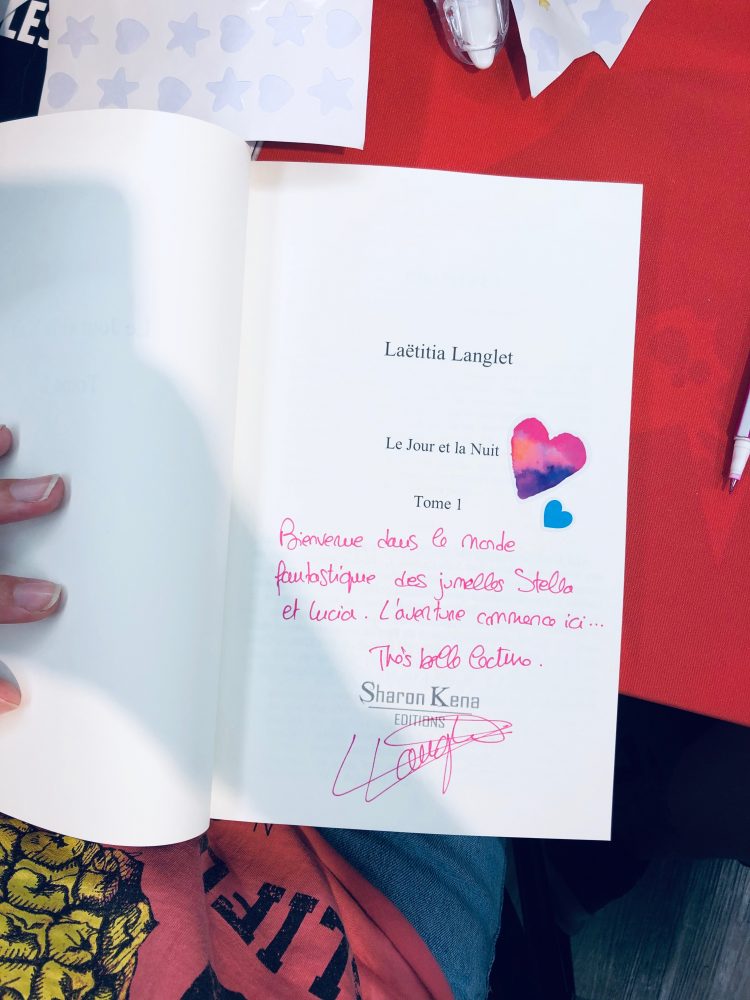 LES
Laëtitia Langlet
Le Jour et la Nuit
Tome 1
Bienvenue dans le monde
fantastique des jumelles Stella
et Lucia. L'aventure commence ici...
Très belle lecture.
Sharon Kena
EDITIONS
LLanglet
LIFE